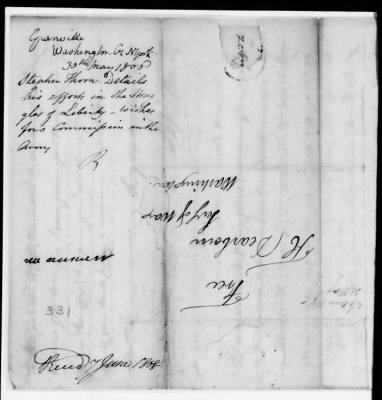 Granville
Washington Co. N York
30th May 1808
Stephen Thorn. Details
his efforts in the Strug
gles of Liberty - wishes
for a Commission in the
Army
R
no answer
331
Recd 7 June 1808
Free
H Dearborn
Secy of War
Washington